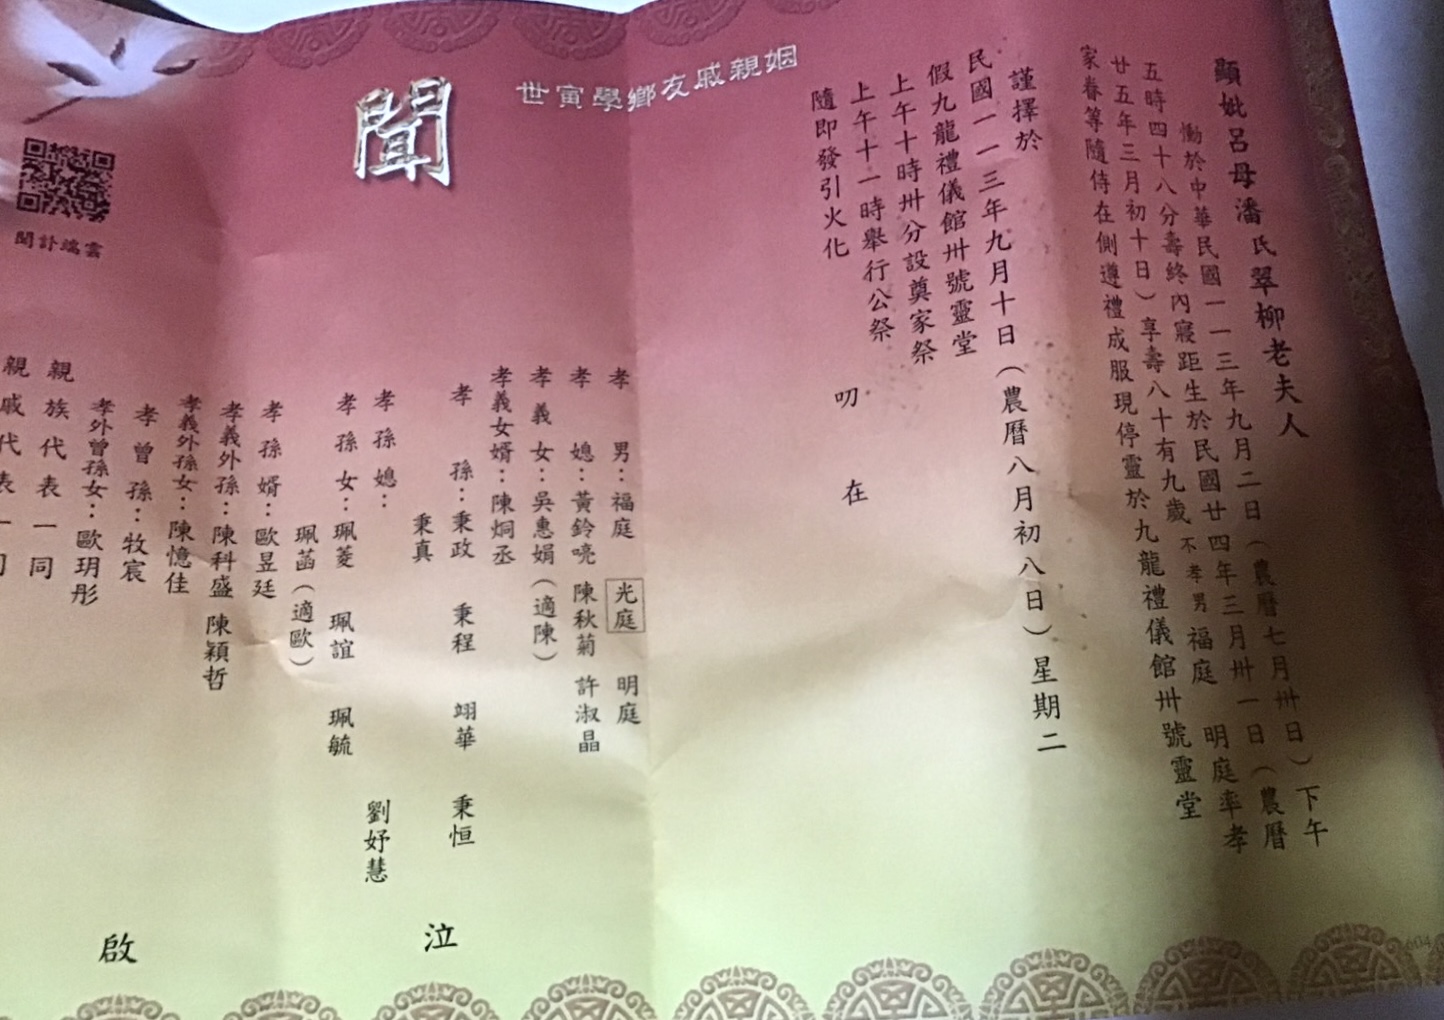 顯妣呂母潘氏翠柳老夫人
慟於中華民國一一三年九月二日（農曆七月卅日）下午
五時四十八分壽終內寢距生於民國廿四年三月卅一日（農曆
廿五年三月初十日）享壽八十有九歲不孝男福庭 明庭率孝
家眷等隨侍在側遵禮成服現停靈於九龍禮儀館卅號靈堂
謹擇於
民國一一三年九月十日（農曆八月初八日）星期二
假九龍禮儀館卅號靈堂
上午十時卅分設奠家祭
上午十一時舉行公祭
隨即發引火化
叨 在
姻親戚友鄉學寅世
聞
孝男：福庭 光庭 明庭
孝媳：黃鈴喨 陳秋菊 許淑晶
孝義女：吳惠娟（適陳）
孝義女婿：陳炯丞
孝孫：秉政 秉程 翊華 秉恒
秉真
孝孫媳： 劉妤慧
孝孫女：珮菱 珮誼 珮毓
珮菡（適歐）
孝孫婿：歐昱廷
孝義外孫：陳科盛 陳穎哲
孝義外孫女：陳憶佳
孝曾孫：牧宸
孝外曾孫女：歐玥彤
泣
親族代表一同
親戚代表一同
啟
雲端訃聞